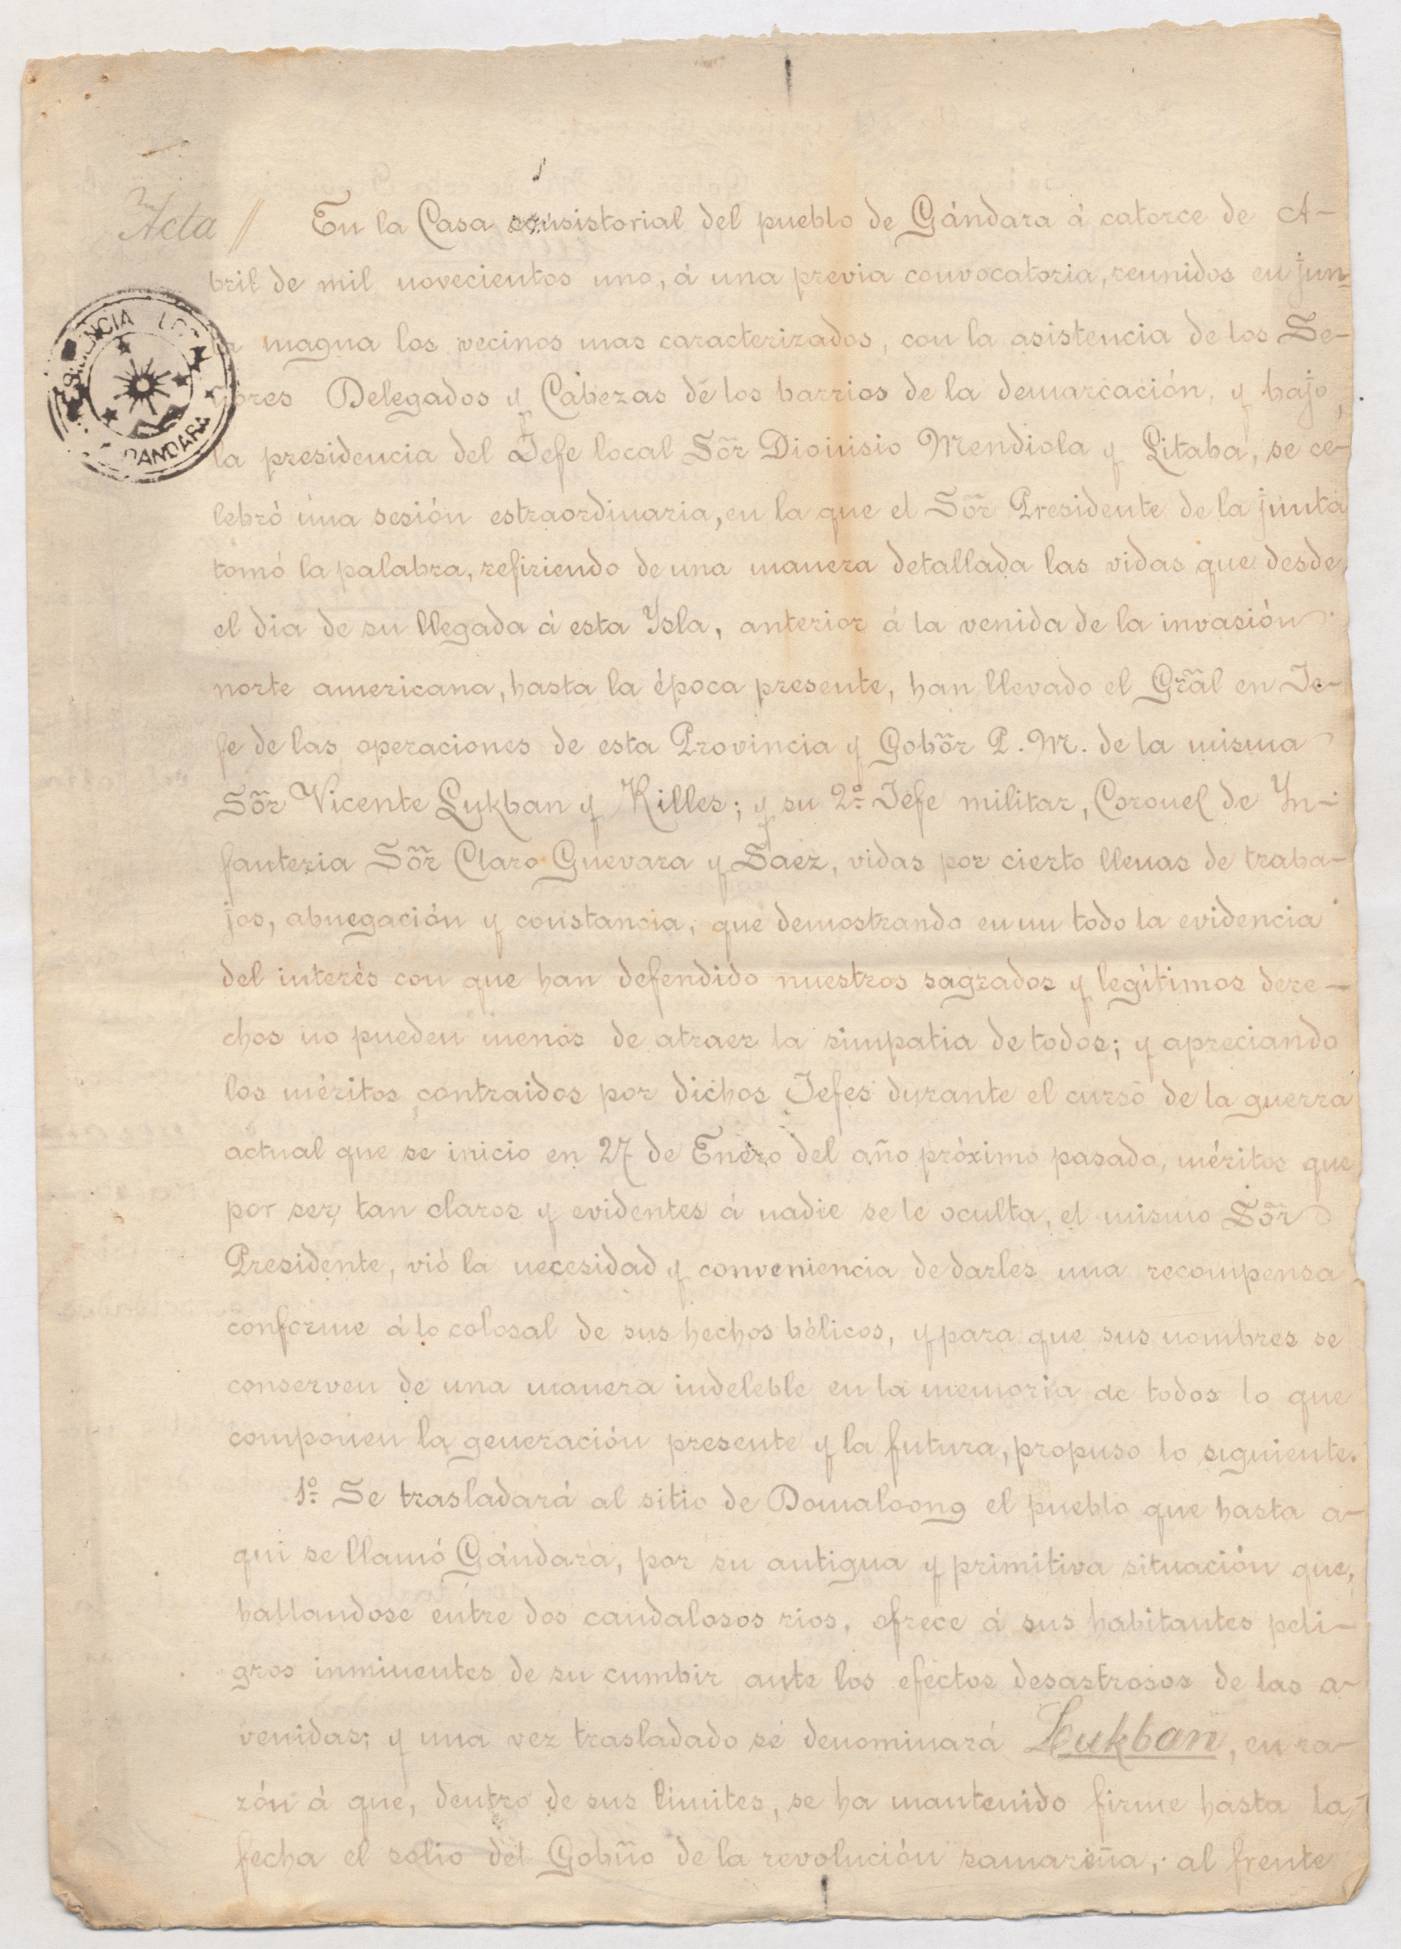 Acta // En la Casa consistorial del pueblo de Gándara á catorce de A-
bril de mil novecientos uno, á una previa convocatoria, reunidos en jun-
ta magna los vecinos mas caracterizados, con la asistencia de los Se-
ñores Delegados y Cabezas de los barrios de la demarcación, y bajo
la presidencia del Jefe local Sõr Dionisio Mendiola y Litaba, se ce-
lebró una sesión estraordinaria, en la que el Sõr Presidente de la junta
tomó la palabra, refiriendo de una manera detallada las vidas que desde
el dia de su llegada á esta Ysla, anterior á la venida de la invasión
norte americana, hasta la época presente, han llevado el Grãl en Je-
fe de las operaciones de esta Provincia y Gobõr P. M. de la misma
Sõr Vicente Lukban y Killes; y su 2º Jefe militar, Coronel de Yn-
fanteria Sõr Claro Guevara y Saez, vidas por cierto llenas de traba-
jos, abnegación y constancia, que demostrando en un todo la evidencia
del interés con que han defendido nuestros sagrados y legítimos dere-
chos no pueden menos de atraer la simpatia de todos; y apreciando
los méritos contraidos por dichos Jefes durante el curso de la guerra
actual que se inicio en 27 de Enero del año próximo pasado, méritos que
por ser tan claros y evidentes á nadie se le oculta, el mismo Sõr
Presidente, vió la necesidad y conveniencia de darles una recompensa
conforme á lo colosal de sus hechos bélicos, y para que sus nombres se
conserven de una manera indeleble en la memoria de todos lo que
componen la generación presente y la futura, propuso lo siguiente.
1º Se trasladará al sitio de Domaloong el pueblo que hasta a-
qui se llamó Gándara, por su antigua y primitiva situación que,
hallandose entre dos caudalosos rios, ofrece á sus habitantes peli-
gros inminentes de su cumbir ante los efectos desastrosos de las a-
venidas; y una vez trasladado se denominará Lukban, en ra-
zón á que, dentro de sus limites, se ha mantenido firme hasta la
fecha el solio del Gobño de la revolución samareña, al frente
PRESIDENCIA LOCAL
GANDARA